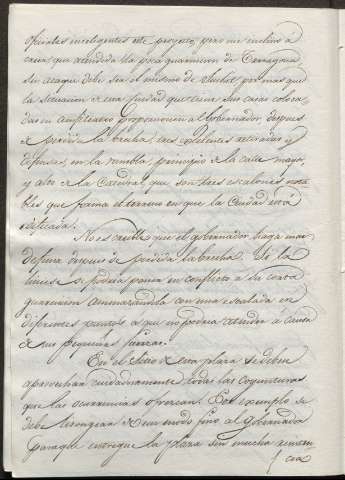 oficiales inteligentes este proyecto, pero me inclino à
creer que atendida la poca guarnicion de Tarragona
su ataque debe ser el mismo de Suchet por mas que
la situacion de esta Ciudad que tiene sus casas coloca-
das en anfiteatro proporcionen al Gobernador, despues
de perdida la brecha, tres excelentes retiradas y
defensas, en la rambla, principio de la calle mayor,
y altos de la Catedral que son tres escalones nota-
bles que forma el terreno en que la Ciudad está
edificada.
No es creible que el gobernador haga una
defensa despues de perdida la brecha. Si la
hiciese se podria poner en conflicto à su corta
guarnicion amenazandola con una escalada en
diferentes puntos à que no podria atender à causa
de sus pequeñas fuerzas.
En el Sitio de esta plaza se deben
aprovechar cuidadosamente todas las coyunturas
que las ocurrencias ofrezcan. Por exemplo se
debe lisongear de un modo fino al Gobernador
para que entregue la plaza sin mucha resisten-
cia